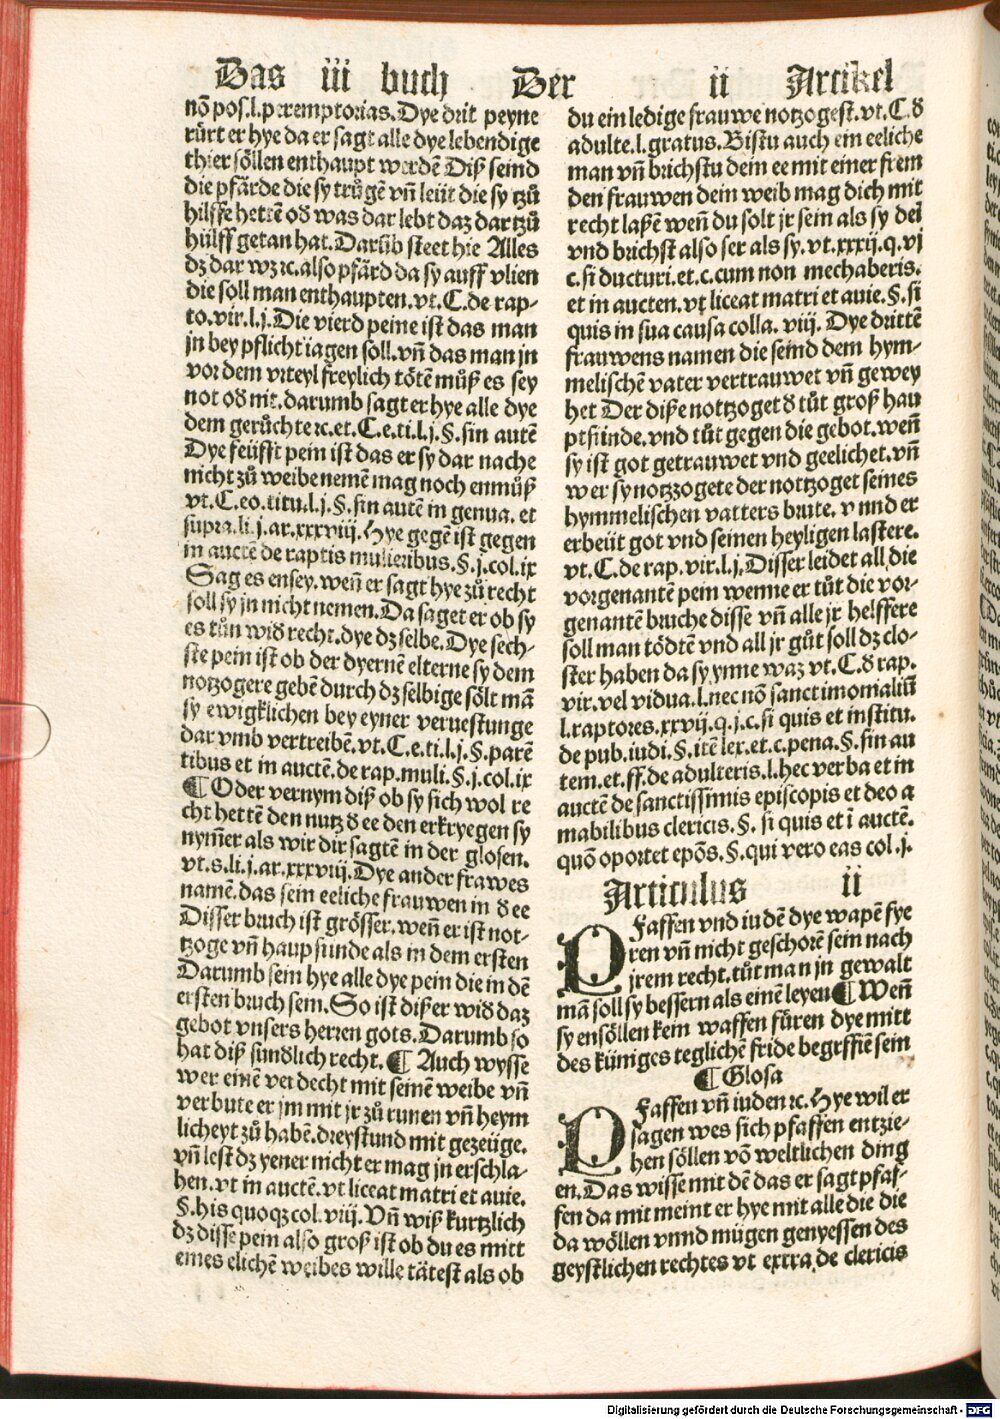 Das iii buch Der ii Artikel
nō pos.l.peremptorias.Dye drit peyne
rürt er hye da er sagt alle dye lebendige
thier söllen enthaupt werdē Diß seind
die pfärde die sy trůgē vñ leüt die sy tzů
hilffe hetrē oď was dar lebt daz dar tzů
hülff getan hat.Darüb steet hie Alles
dz dar wz ꝛc.also pfärd da sy auff vlien
die soll man enthaupten.vt.C.de rap-
to.vir.l.j.Die vierd peine ist das man
jn bey pflicht iagen soll.vñ das man jn
vor dem vrteyl freylich tötē můß es sey
not oď nit.darumb sagt er hye alle dye
dem gerůchte ꝛc.et.C.e.ti.l.j.§.sin autē
Dye feüfft pein ist das er sy dar nache
nicht zů weibe nemē mag noch enmůß
vt.C.eo.titu.l.j.§.sin autē in genua.et
supra.li.j.ar.xxxviij.Hye gegē ist gegen
in auctē de raptis mulieribus.§.j.col.ix
Sag es ensey.weñ er sagt hye zů recht
soll sy jn nicht nemen.Da saget er ob sy
es tůn wiď recht.dye dz selbe.Dye sech-
ste pein ist ob der dyernē elterne sy dem
notzogere gebē durch dz selbige sölt mā
sy ewigklichen bey eyner veruestunge
dar vmb vertreibē.vt.C.e.ti.l.j.§.parē
tibus et in auctē.de rap.muli.§.j.col.ix
¶ Oder vernym diß ob sy sich wol re
cht hettē den nutz ď ee den erkryegen sy
nym̄er als wir dir sagtē in der glosen.
vt.s.li.j.ar.xxxviij.Dye ander frawes
namē.das sein eeliche frauwen in ď ee
Disser bruch ist grösser.weñ er ist not-
tzoge vñ haupsunde als in dem ersten
Darumb sein hye alle dye pein die in dē
ersten bruch sein.So ist dißer wiď daz
gebot vnsers herren gots.Darumb so
hat diß sundlich recht.¶ Auch wysse
wer einē verdecht mit seinē weibe vñ
verbute er jm mit jr zů runen vñ heym
licheyt zů habē.dreystund mit gezeüge.
vñ lest dz yener nicht er mag jn erschla-
hen.vt in auctē.vt liceat matri et auie.
§.his quoqz col.viij.Vñ wiß kurtzlich
dz disse pein also groß ist ob du es mitt
eines elichē weibes wille tätest als ob
du ein ledige frauwe notzogest.vt.C.ď
adulte.l.gratus.Bistu auch ein eeliche
man vñ brichstu dein ee mit einer frem
den frauwen dein weib mag dich mit
recht laßē weñ du solt jr sein als sy dei
vnd brichst also ser als sy.vt.xxxij.q.vj
c.si ducturi.et.c.cum non mechaberis.
et in aucten.vt liceat matri et auie.§.si
quis in sua causa colla.viij.Dye drittē
frauwens namen die seind dem hym-
melischē vater vertrauwet vñ gewey
het Der diße nottzoget ď tůt groß hau
ptsünde.vnd tůt gegen die gebot.weñ
sy ist got getrauwet vnd geelichet.vñ
wer sy notzzogete der nottzoget seines
hymmelischen vatters brute.vnnd er
erbeüt got vnd seinen heyligen lastere.
vt.C.de rap.vir.l.j.Disser leidet all die
vorgenantē pein wenne er tůt die vor-
genantē bruche disse vñ alle jr helffere
soll man tödtē vnd all jr gůt soll dz clo-
ster haben da sy ynne waz vt.C.ď rap.
vir.vel vidua.l.nec nō sanctimonialiū
l.raptores.xxvij.q.j.c.si quis et institu.
de pub.iudi.§.itē lex.et.c.pena.§.fin au
tem.et.ff.de adulteris.l.hec verba et in
auctē de sanctissimis episcopis et deo a
mabilibus clericis.§. si quis et ī auctē.
quō oportet epōs.§.qui vero eas col.j.
Articulus ii
Pfaffen vnd iudē dye wapē fye
ren vñ nicht geschorē sein nach
jrem recht.tůt man jn gewalt
mā soll sy bessern als einē leyen ¶ Weñ
sy ensöllen kein waffen füren dye mitt
des küniges teglichē fride begrffiē sein
¶ Glosa
Pfaffen vñ iuden ꝛc.Hye wil er
sagen wes sich pfaffen entzie-
hen söllen vō weltlichen ding
en.Das wisse mit dē das er sagt pfaf-
fen da mit meint er hye mit alle die die
da wöllen vnnd mügen genyessen des
geystlichen rechtes vt extra de clericis
Digitalisierung gefördert durch die Deutsche Forschungsgemeinschaft - DFG